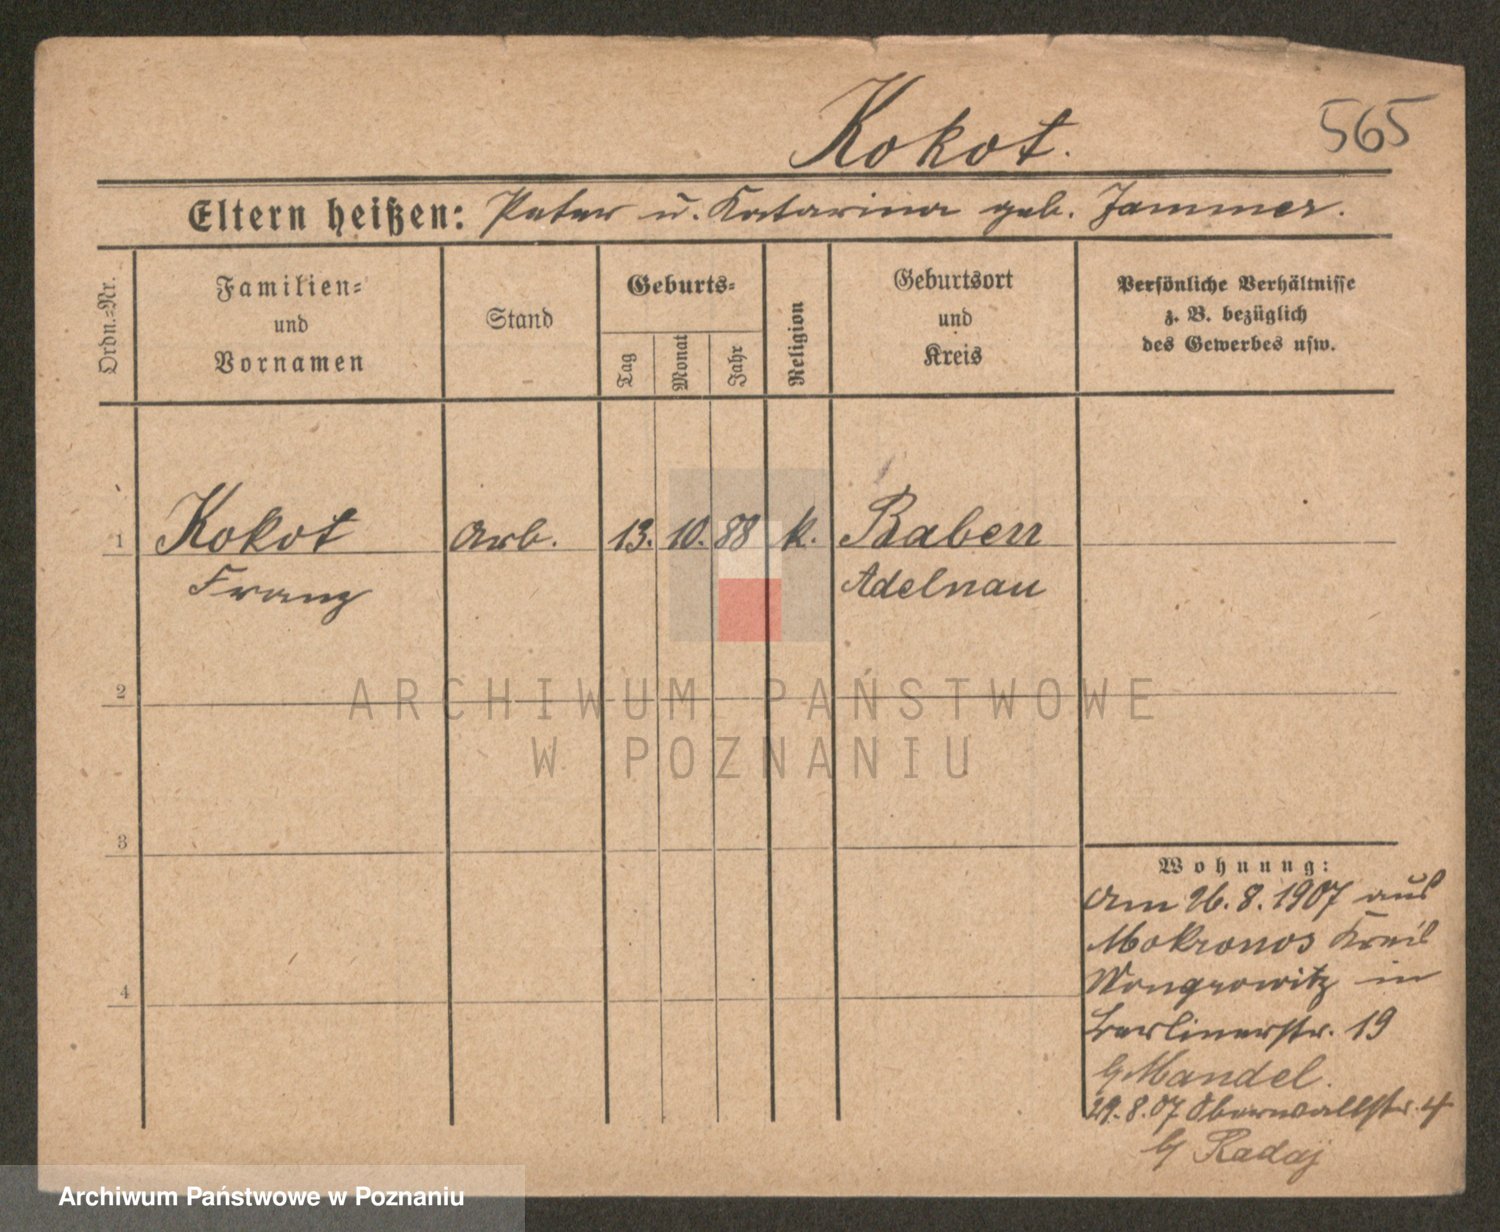 Kokot.
565
Eltern heißen: Peter u. Katarina geb. Jammer.
Ordn.-Nr.
Familien-
und
Vornamen
Stand
Geburts-
Tag
Monat
Jahr
Religion
Geburtsort
und
Kreis
Persönliche Verhältnisse
z. B. bezüglich
des Gewerbes usw.
1 Kokot Arb. 13. 10. 88 k. Raben
Franz Adelnau
2
ARCHIWUM PAŃSTWOWE
W POZNANIU
3
Wohnung:
Am 26. 8. 1907 aus
Mokronos Kreis
Wongrowitz in
Berlinerstr. 19
b/ Mandel.
29. 8. 07 Oberwallstr. 4
b/ Radaj
4
Archiwum Państwowe w Poznaniu